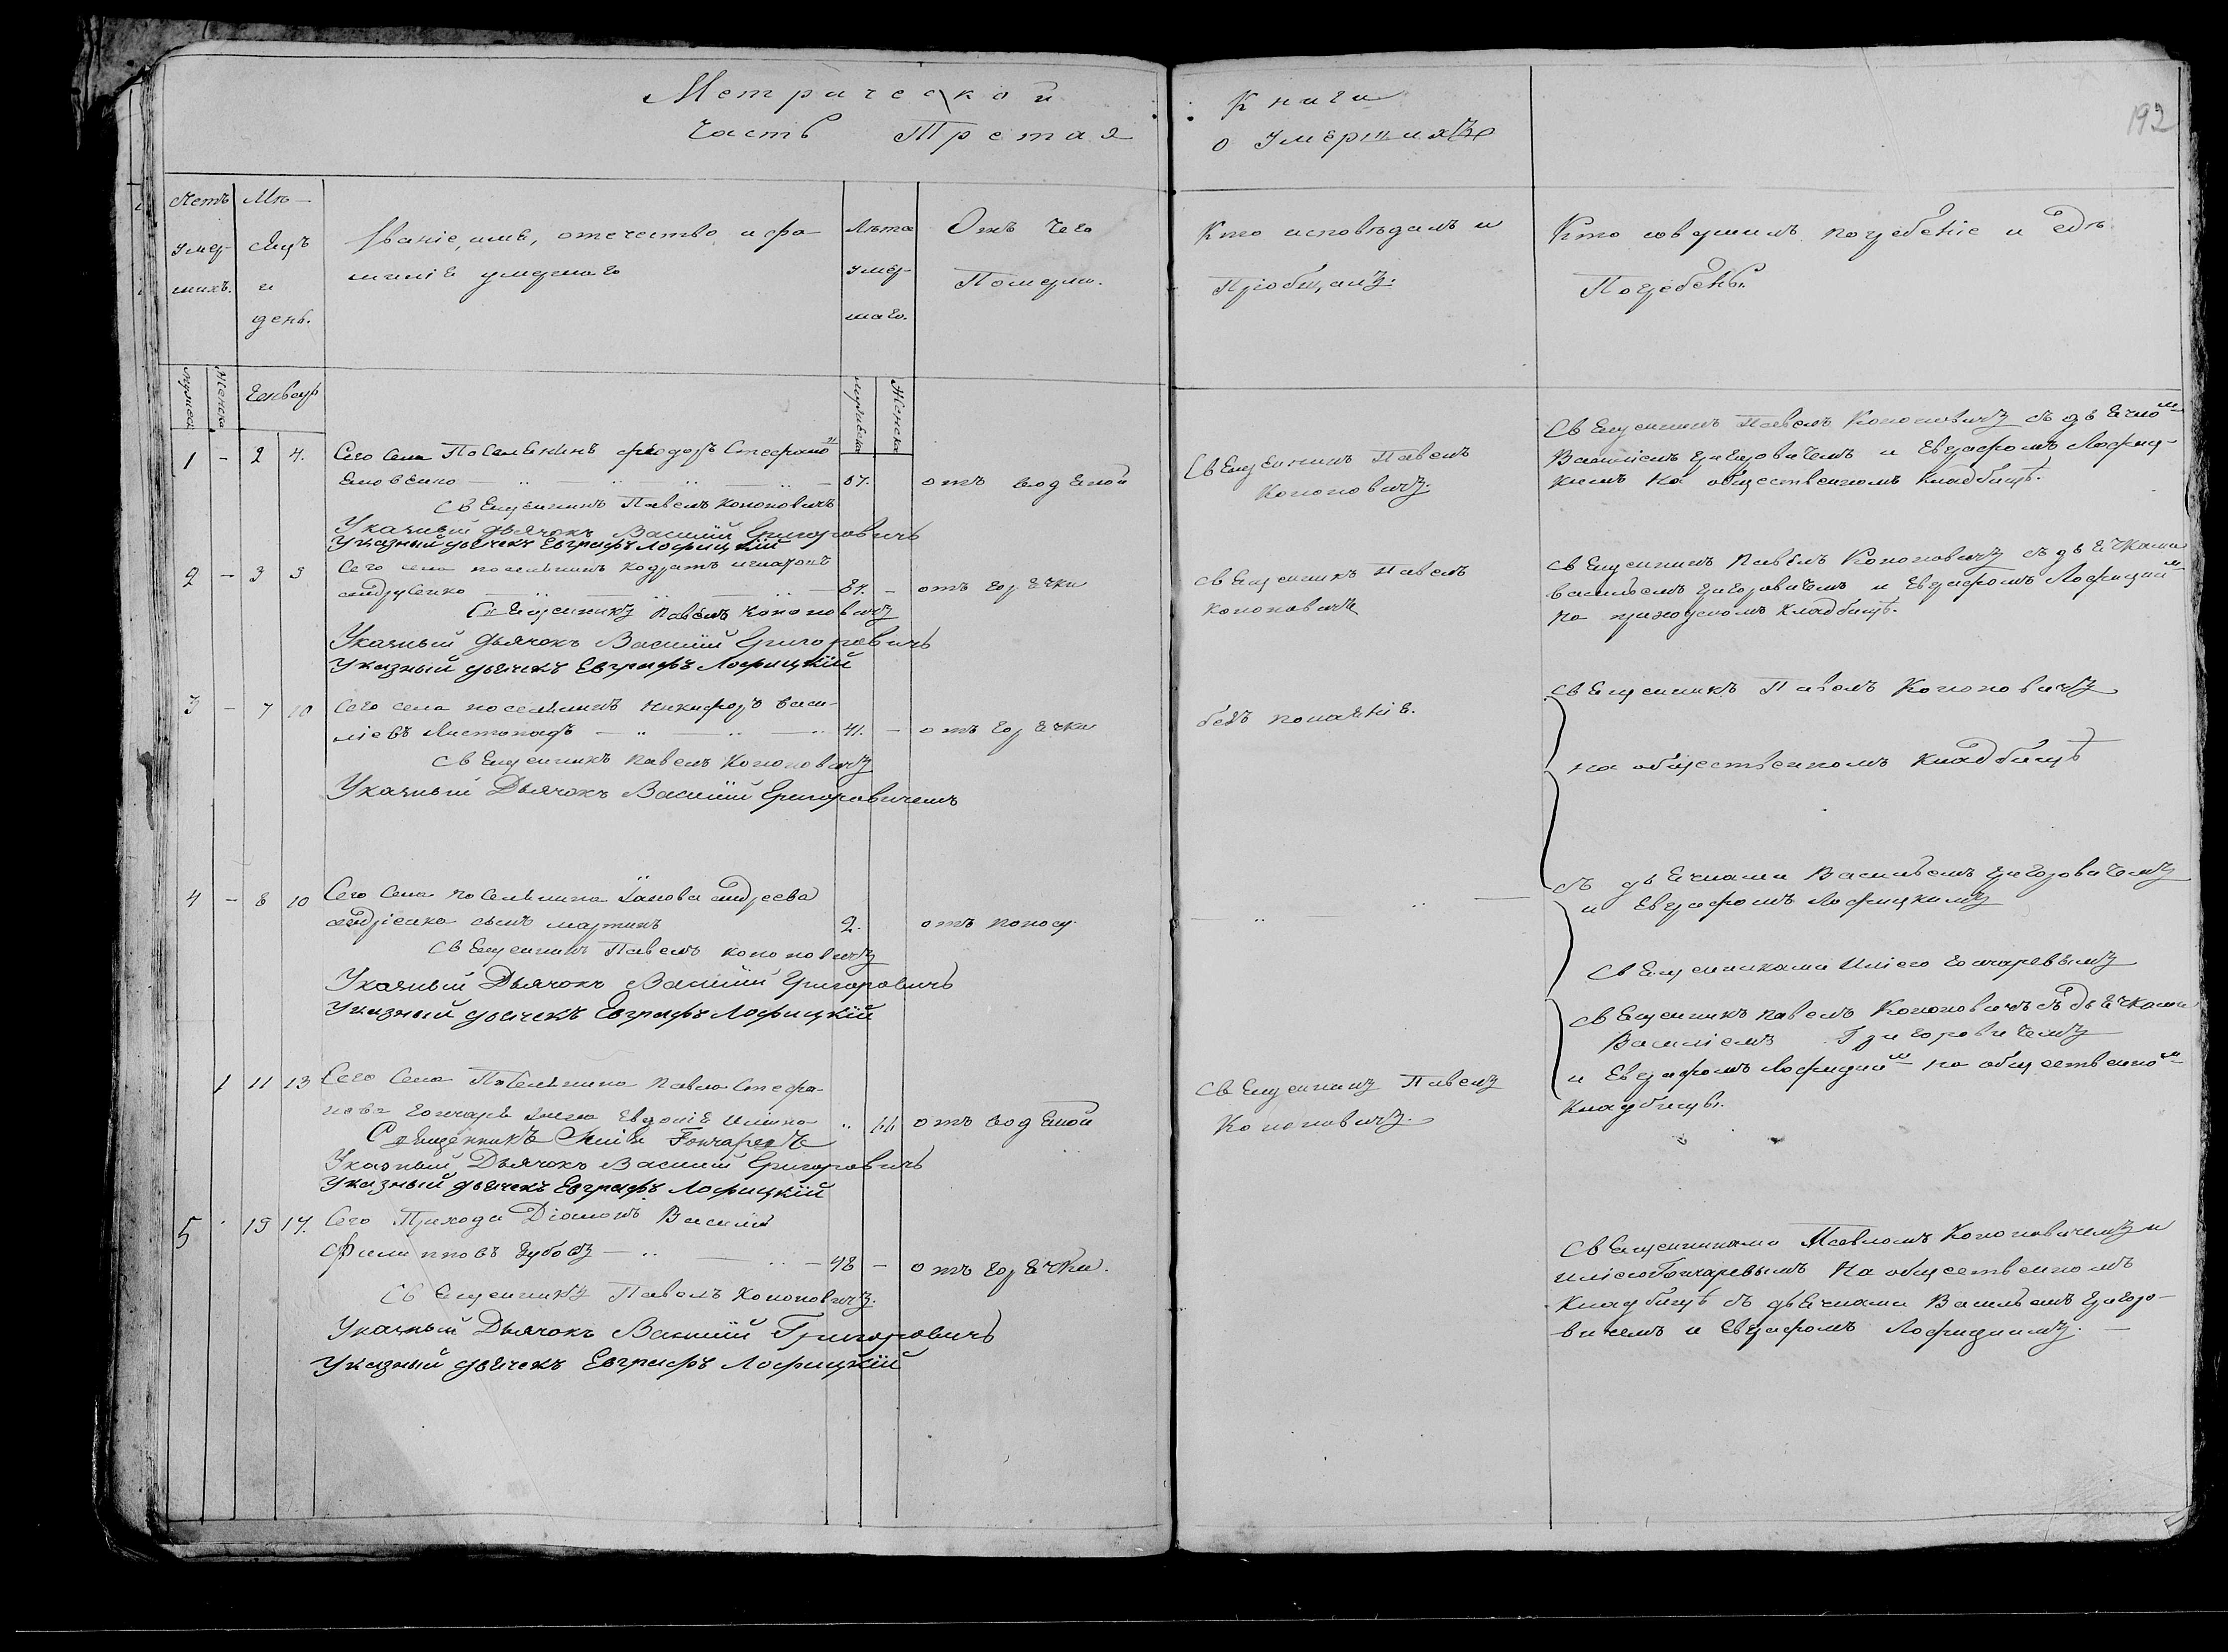 Метрической
Часть Третая
Книги
о Умершихъ
192
Счетъ умершихъ.
Мѣсяцъ и день.
Званіе, имѣ, отечество и фамиліе умершаго
Лѣта умершаго.
Отъ чего Померли.
Кто исповѣдалъ и Пріобщалъ.
Кто совершилъ погребеніе и гдѣ Погребенъ.
Мужеска
Женска
Генваръ
Мужеска
Женска
1 - 2 4. Сего Села Поселенинъ Феодоръ Стефано
57. отъ водяной
Священникъ Павелъ Кононовичъ
Указный Дьячокъ Василій Григоровичъ
Указный дьячекъ Евграфъ Лофицкій
Священникъ Павелъ
Кононовичъ.
Священникъ Павелъ Кононовичъ съ дьячко
Василіемъ Григоровичемъ и Евграфомъ Лофиц-
кимъ на общественномъ кладбищѣ.
2 - 3 5 Сего села поселянинъ Кодратъ
андрущенко отъ горячки
Священникъ Павелъ Кононовичъ
Указный Дьячокъ Василій Григоровичъ
Указный дьячекъ Евграфъ Лофицкій
Священникъ Павелъ
Кононовичъ
Священникъ Павелъ Кононовичъ съ дьячками
Васильемъ Григоровичемъ и Евграфомъ Лофицки
на приходскомъ кладбищѣ.
3 - 7 10 Сего села поселянинъ Никифоръ васи-
ліевъ Листопадъ 41. - отъ горячки
Священникъ Павелъ Кононовичъ
Указный Дьячокъ Василій Григоровичемъ
безъ покаяніе.
Священникъ Павелъ Кононовичъ
на общественномъ кладбищѣ
4 - 8 10 Сего Села поселянина Іакова андреева
андріенка сынъ мартинъ 2. отъ поносу
Священникъ Павелъ Кононовичъ
Указный Дьячокъ Василій Григоровичъ
Указный дьячекъ Евграфъ Лофицкій
съ дьячками Васильемъ Григоровичемъ
и Евграфомъ Лофицкимъ
Священниками Иліею Гончаревымъ
1 11 13 Сего Села Поселянина Павла Стефа-
нова Гончара жена Евдокіе
66 отъ водяной
Священникъ Илія Гончаревъ
Указный Дьячокъ Василій Григоровичъ
Указный дьячекъ Евграфъ Лофицкій
Священникъ Павелъ
Кононовичъ.
Священникъ Павелъ Кононовичъ съ дьячками
Василіемъ Григоровичемъ
и Евграфомъ Лофицки на общественно
кладбищѣ.
5 15 17. Сего Прихода Діаконъ Василій
Филиповъ Зубовъ 48 - отъ горячки.
Священникъ Павелъ Кононовичъ.
Указный Дьячокъ Василій Григоровичъ
Указный дьячекъ Евграфъ Лофицкій
Священниками Павломъ Кононовичемъ и
Иліею Гончаревымъ на общественномъ
кладбищѣ съ дьячками Васильемъ Григоро-
вичемъ и Евграфомъ Лофицкимъ.